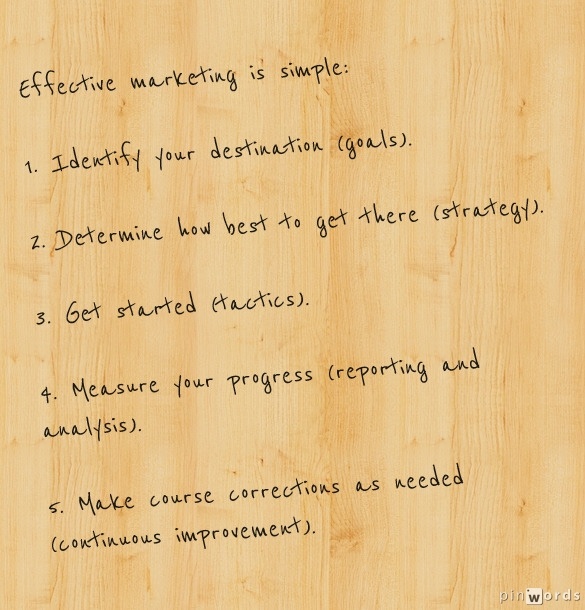 Effective marketing is simple:
1. Identify your destination (goals).
2. Determine how best to get there (strategy).
3. Get started (tactics).
4. Measure your progress (reporting and
analysis).
5. Make course corrections as needed
(continuous improvement).
pinwords